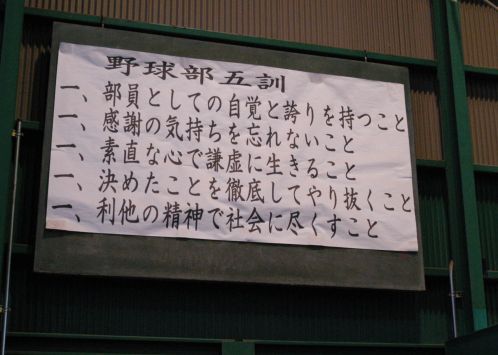 野球部五訓
一、部員としての自覚と誇りを持つこと
一、感謝の気持ちを忘れないこと
一、素直な心で謙虚に生きること
一、決めたことを徹底してやり抜くこと
一、利他の精神で社会に尽くすこと